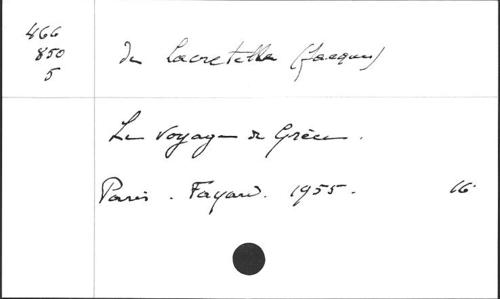 466
850
5
de Lacretelle (Jacques)
Le Voyage de Grèce.
Paris. Fayard. 1955. 16°